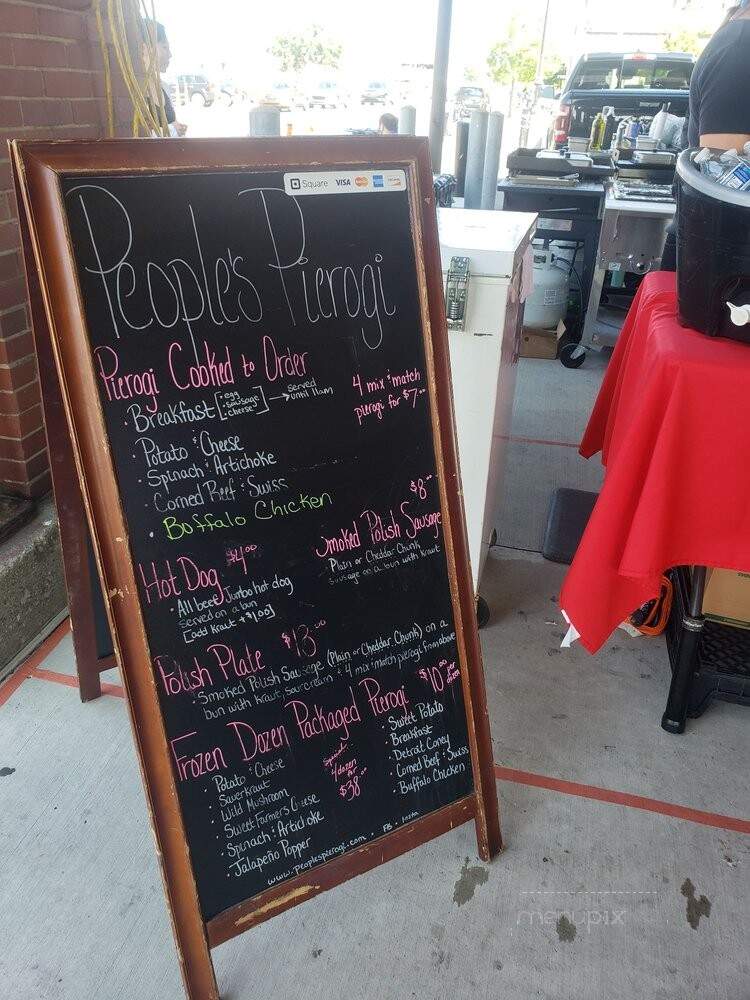 Square VISA
People's Pierogi
Pierogi Cooked to Order
• Breakfast [• egg • sausage • cheese] → served until 11am
4 mix & match pierogi for $7.00
• Potato & Cheese
• Spinach & Artichoke
• Corned Beef & Swiss
• Buffalo Chicken
Hot Dog $4.00
• All beef Jumbo hot dog
served on a bun
[add kraut +$1.00]
$8.00
Smoked Polish Sausage
• Plain or Cheddar Chunk
sausage on a bun with kraut
Polish Plate $13.00
• Smoked Polish Sausage (Plain or Cheddar Chunk) on a
bun with kraut, sourcream & 4 mix & match pierogi from above
Frozen Dozen Packaged Pierogi $10.00 per dozen
• Potato & Cheese
• Sauerkraut
• Wild Mushroom
• Sweet Farmer's Cheese
• Spinach & Artichoke
• Jalapeño Popper
Special
4 dozen
for
$38.00
• Sweet Potato
• Breakfast
• Detroit Coney
• Corned Beef & Swiss
• Buffalo Chicken
www.peoplespierogi.com • FB • Insta
menupix